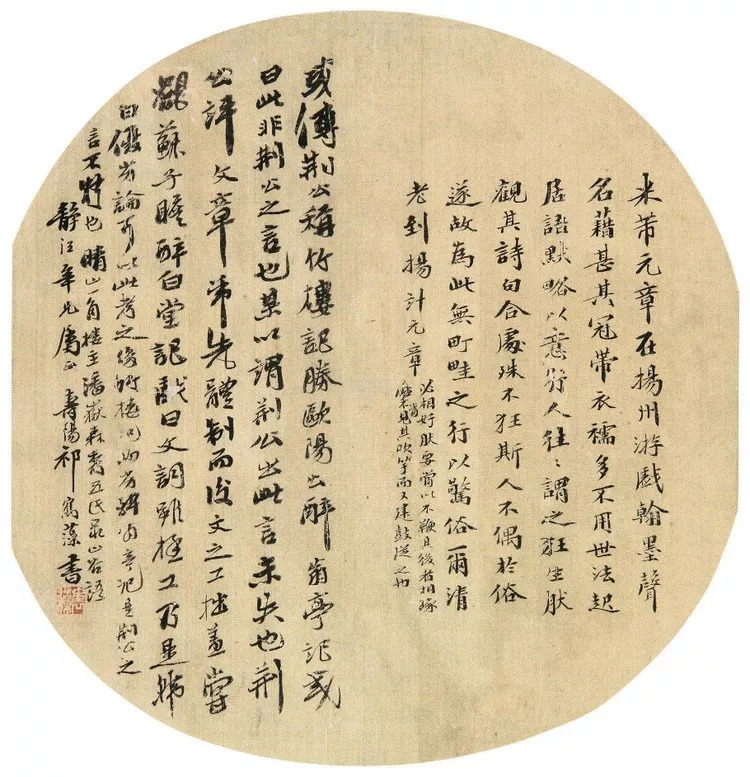 米芾元章在揚州游戲翰墨聲
名藉甚其冠帶衣襦多不用世法起
居語默略以意行人往〻謂之狂生肰
觀其詩句合處殊不狂斯人不偶於俗
遂故為此無町畦之行以驚俗爾清
老到揚計元章
必相好肰要當以不鞭其後者相琢
磨不見其吹竽而又建鼓從之也
或傳荊公稱竹樓記勝歐陽公醉翁亭記或
曰此非荊公之言也某以謂荊公出此言未失也荊
公評文章常先體制而後文之工拙蓋嘗
觀蘇子瞻醉白堂記戲曰文詞雖極工乃是韓
白優劣論耳以此考之優竹樓而劣醉翁亭記是荊公之
言不疑也晴山一角樓主潘嶽森山谷語
靜汪年兄屬正壽陽祁寯藻書